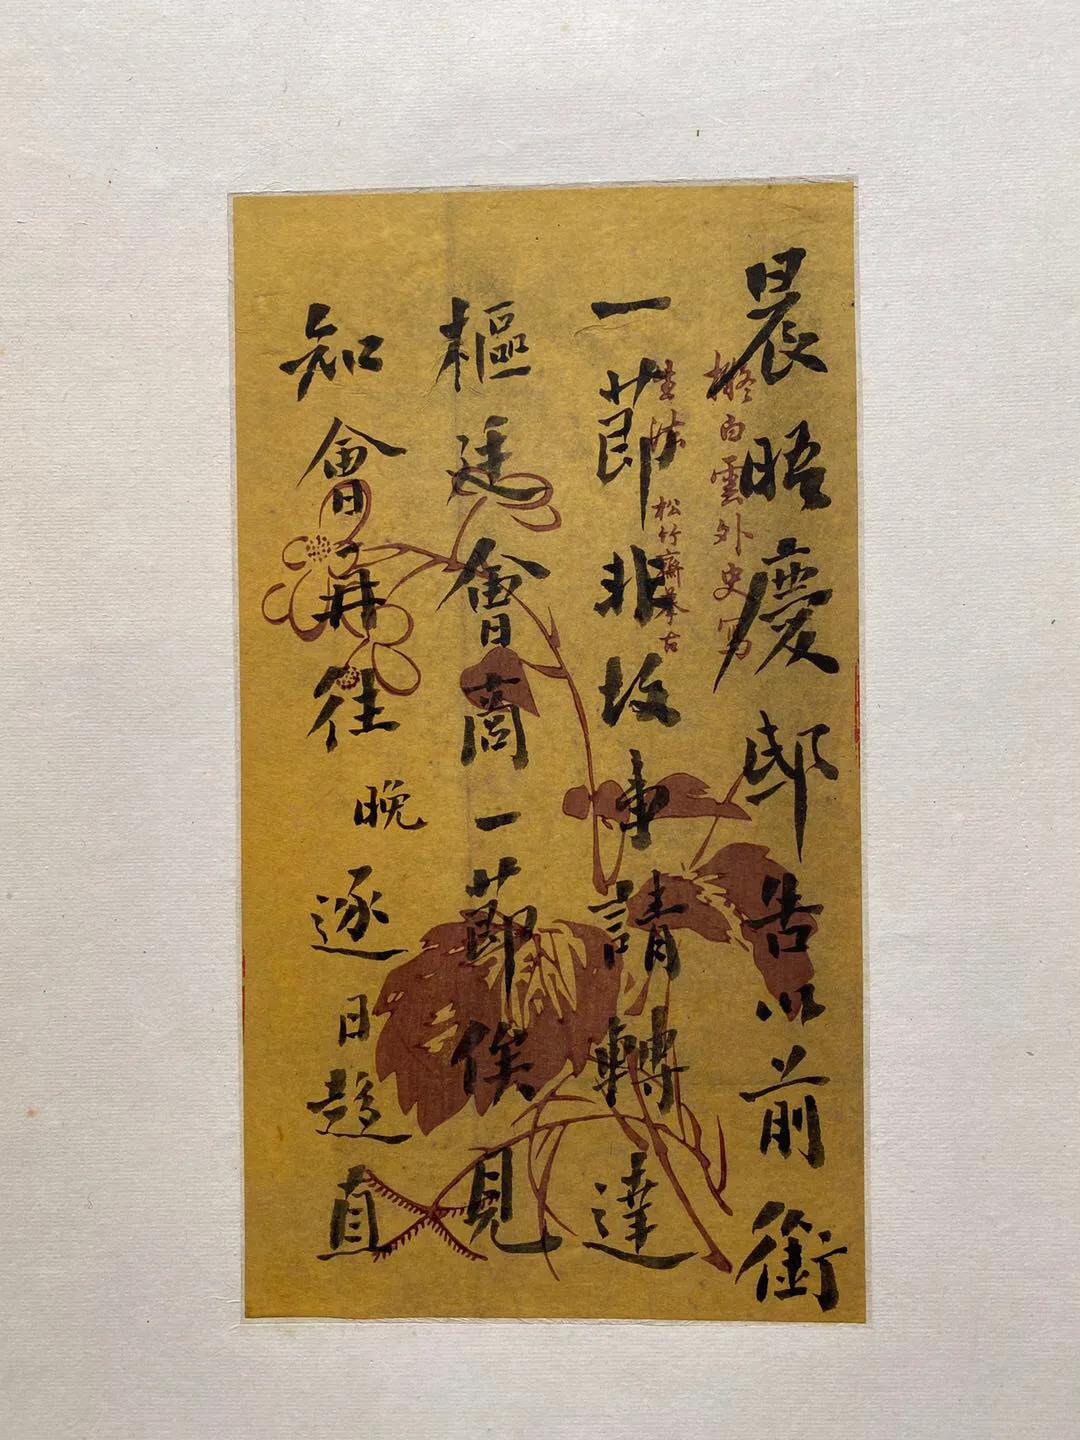 晨晤慶邸告以前銜
一節非故事請轉達
樞廷會商一節俟見
知會再往晚逐日趨直
擬白雲外史寫
生法 松竹齋摹古